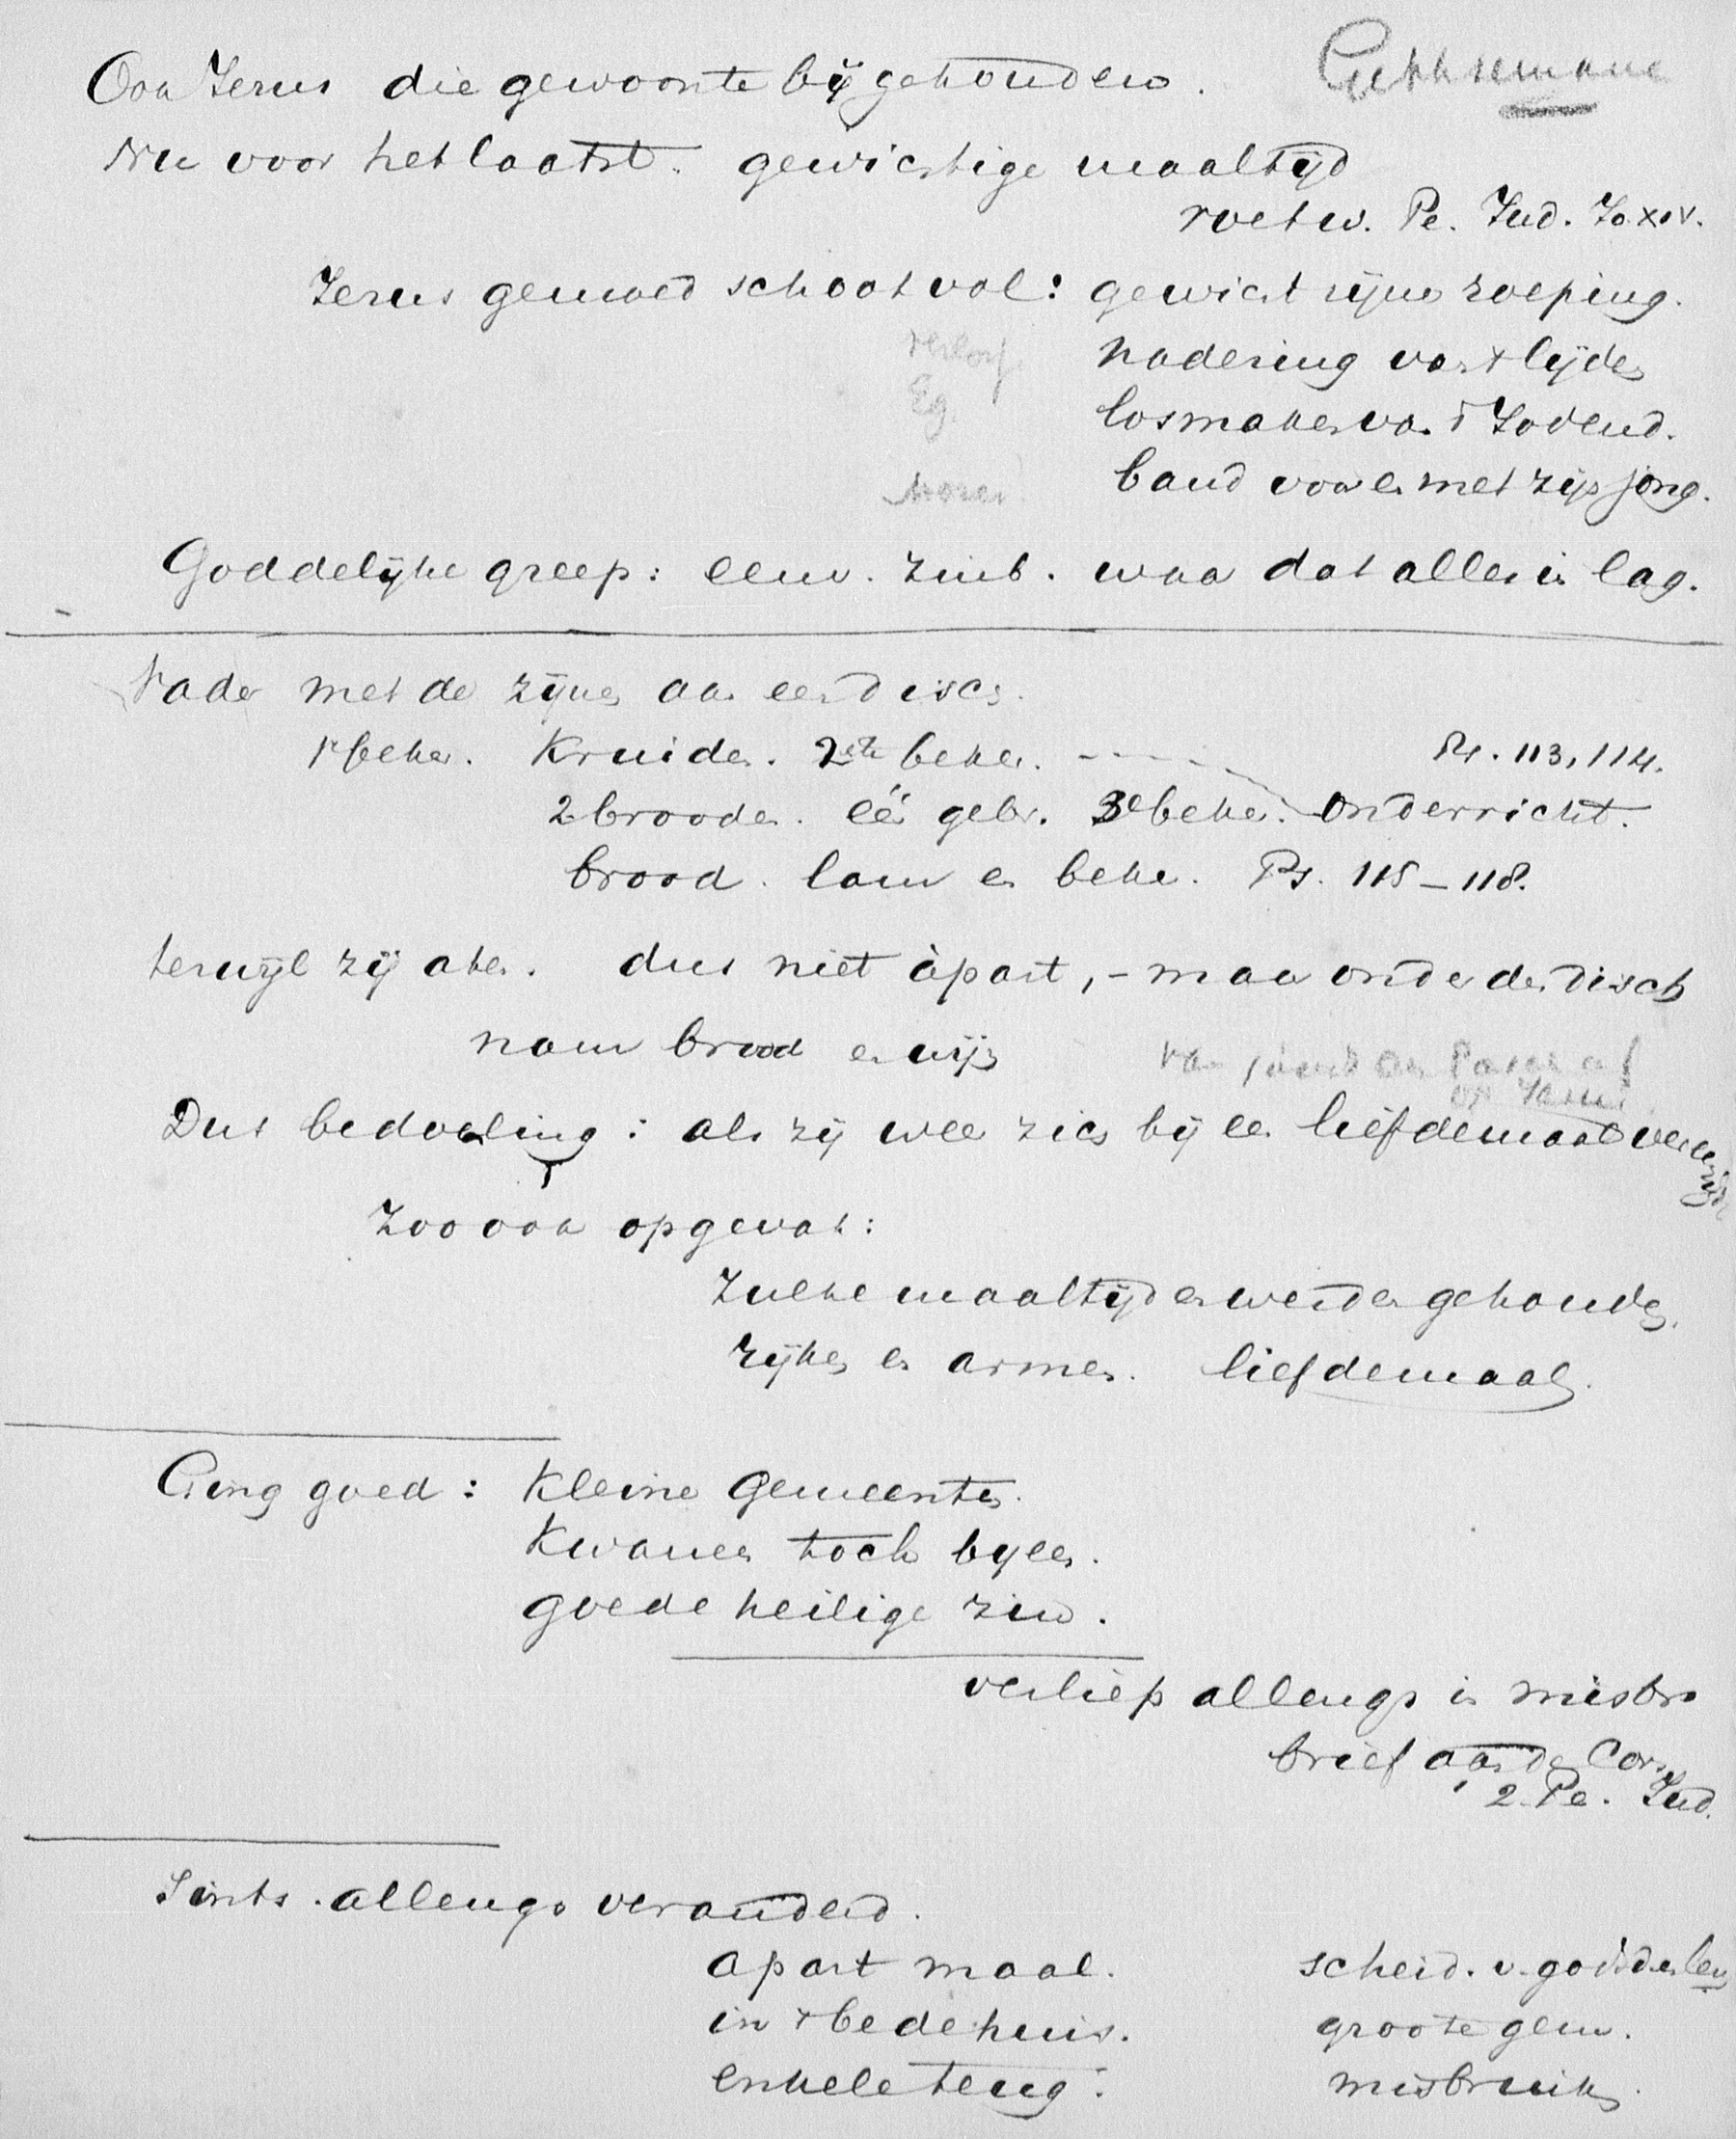 Gethsemane
Ook Jezus die gewoonte bijgehouden.
Nu voor het laatst. gewichtige maaltijd
voetw. Pe. Jud. Jo XIV.
Jezus gemoed schoot vol: gewicht zijner roeping.
verlos. nadering van 't lijden
Eg. losmaken van 't Jodend.
band voor en met zijn jong.
Goddelijke greep: eenv. zinb. waar dat alles in lag.
Vader met de zijnen aan een disch.
1e beker. Kruiden. 2de beker. Ps. 113, 114.
2 brooden. één gebr. 3e beker. onderricht.
brood. lam en beker. Ps. 115 – 118.
terwijl zij aten. dus niet àpart, – maar onder den disch
nam brood en wijn
op Jezus
Dus bedoeling: als zij weer zich bij een liefdemaal vereenigden
Zoo ook opgevat:
Zulke maaltijden werden gehouden.
rijken en armen. liefdemaal.
Ging goed: Kleine Gemeenten.
Kwamen toch bijeen.
goede heilige zin.
verliep allengs in misbr.
brief aan de Cor.
2 Pe. Jud.
Sints. allengs veranderd.
apart maal. scheid. v. godd. en lev
in 't bedehuis. groote gem.
enkele teug. misbruik.